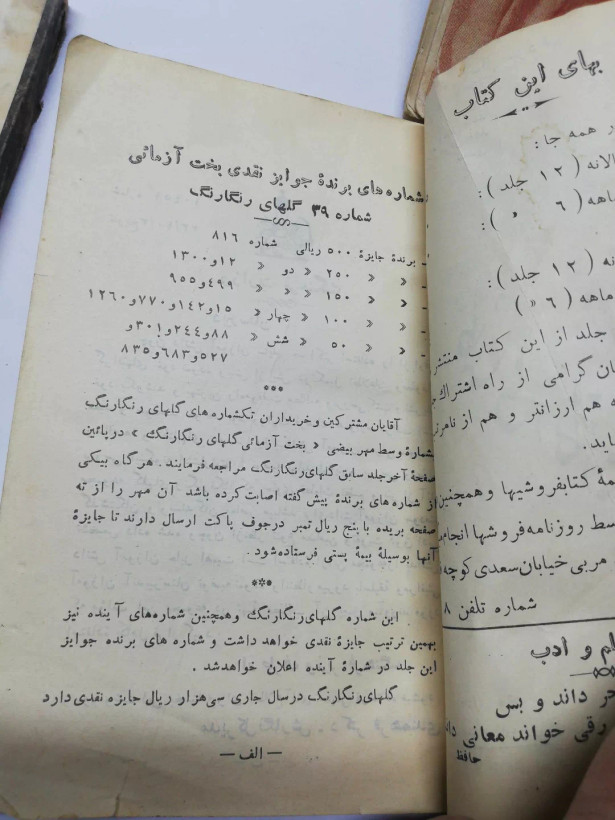 بهای این کتاب
در همه جا:
سالانه (۱۲ جلد):
ماهه (۶ » ):
(۱۲ جلد):
ماهه (۶ »)
جلد از این کتاب منتشر
گرامی از راه اشتراک
هم ارزانتر و هم از نامرتبی
کتابفروشیها و همچنین
توسط روزنامه‌فروشها انجام
خیابان سعدی کوچه
شماره تلفن ۸
و ادب
داند و بس
خواند معانی
حافظ
شماره‌های برندهٔ جوایز نقدی بخت آزمائی
شماره ۳۹ گلهای رنگارنگ
- برندهٔ جایزهٔ ۵۰۰ ریالی شماره ۸۱۶
- » » ۲۵۰ » دو » ۱۲و۱۳۰۰
- » » ۱۵۰ » » » ۴۹۹و۹۵۵
- » » ۱۰۰ » چهار » ۱۵و۱۴۲و۷۷۰و۱۲۶۰
- » » ۵۰ » شش » ۸۸و۲۴۴و۳۰۱و
۵۲۷و۶۸۳و۸۳۵
***
آقایان مشترکین و خریداران تکشماره‌های گلهای رنگارنگ
شمارهٔ وسط مهر بیضی « بخت آزمائی گلهای رنگارنگ » در پائین
صفحهٔ آخر جلد سابق گلهای رنگارنگ مراجعه فرمایند . هرگاه بیکی
از شماره‌های برندهٔ پیش گفته اصابت کرده باشد آن مهر را از ته
صفحه بریده با پنج ریال تمبر در جوف پاکت ارسال دارند تا جایزهٔ
آنها بوسیلهٔ بیمهٔ پستی فرستاده شود .
***
این شماره گلهای رنگارنگ و همچنین شماره‌های آینده نیز
بهمین ترتیب جایزهٔ نقدی خواهد داشت و شماره های برنده جوایز
این جلد در شمارهٔ آینده اعلان خواهد شد .
گلهای رنگارنگ در سال جاری سی هزار ریال جایزه نقدی دارد
— الف —